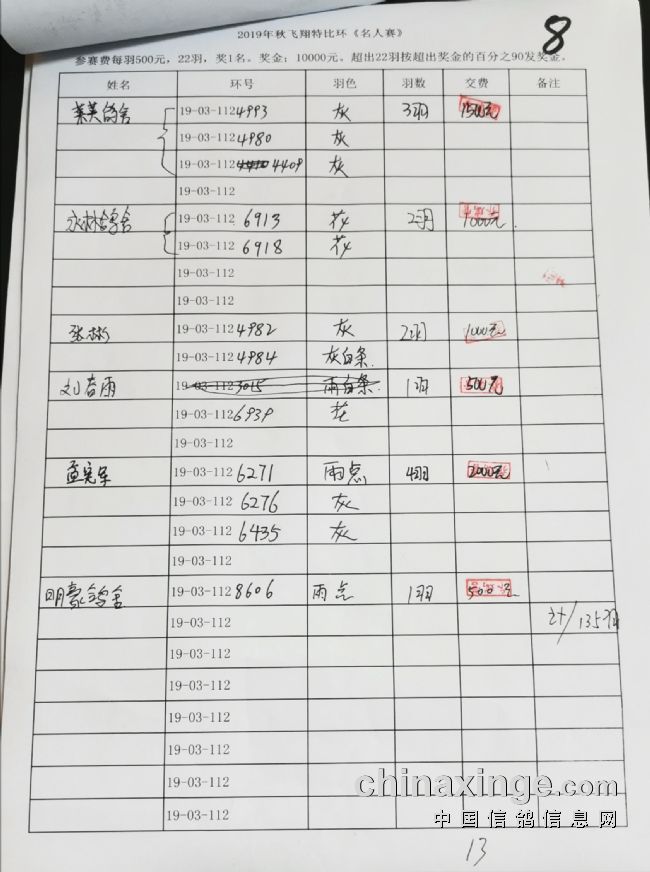 2019年秋飞翔特比环《名人赛》
8
参赛费每羽500元，22羽，奖1名。奖金：10000元。超出22羽按超出奖金的百分之90发奖金。
姓名 环号 羽色 羽数 交费 备注
莱英鸽舍 19-03-112 4993 灰 3羽 1500元
19-03-112 4980 灰
19-03-112 4409 灰
19-03-112
永林鸽舍 19-03-112 6913 花 2羽 1000元
19-03-112 6918 花
19-03-112
19-03-112
张彬 19-03-112 4982 灰 2羽 1000元
19-03-112 4984 灰白条
刘春雨 19-03-112 3015 雨白条 1羽 500元
19-03-112 6939 花
19-03-112
孟宪军 19-03-112 6271 雨点 4羽 2000元
19-03-112 6276 灰
19-03-112 6435 灰
19-03-112
明豪鸽舍 19-03-112 8606 雨点 1羽 500元
19-03-112 计/135羽
19-03-112
19-03-112
19-03-112
19-03-112
19-03-112
19-03-112
chinaxinge.com
中国信鸽信息网
13